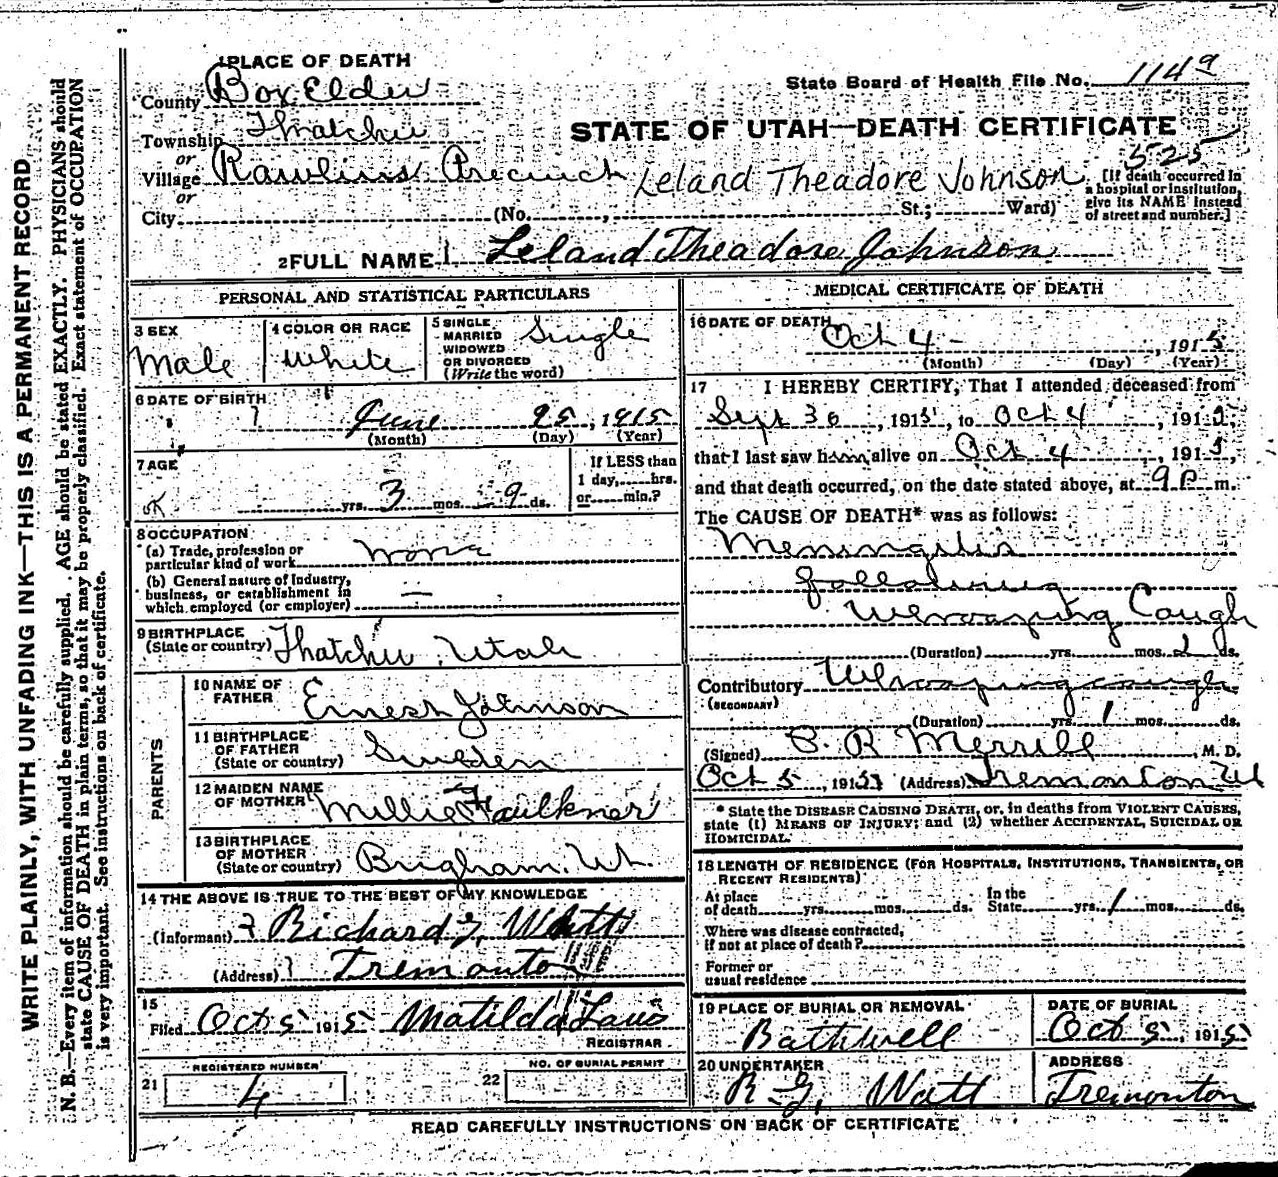 WRITE PLAINLY, WITH UNFADING INK—THIS IS A PERMANENT RECORD
N. B.—Every item of information should be carefully supplied. AGE should be stated EXACTLY. PHYSICIANS should
state CAUSE OF DEATH in plain terms, so that it may be properly classified. Exact statement of OCCUPATION
is very important. See instructions on back of certificate.
1 PLACE OF DEATH
County Box Elder
State Board of Health File No. 114 9
Township Thatcher
STATE OF UTAH—DEATH CERTIFICATE
or
Village Rawlins Precinct Leland Theadore Johnson
525
or
[If death occurred in a hospital or institution, give its NAME instead of street and number.]
City (No. , St.; Ward)
2 FULL NAME Leland Theadore Johnson
PERSONAL AND STATISTICAL PARTICULARS
3 SEX Male
4 COLOR OR RACE White
5 SINGLE MARRIED WIDOWED OR DIVORCED (Write the word) Single
6 DATE OF BIRTH June 25, 1915
(Month) (Day) (Year)
7 AGE
ok yrs. 3 mos. 9 ds.
If LESS than 1 day, hrs. or min.?
8 OCCUPATION
(a) Trade, profession or particular kind of work None
(b) General nature of Industry, business, or establishment in which employed (or employer) —
9 BIRTHPLACE (State or country) Thatcher, Utah
PARENTS
10 NAME OF FATHER Ernest Johnson
11 BIRTHPLACE OF FATHER (State or country) Sweden
12 MAIDEN NAME OF MOTHER Millie Faulkner
13 BIRTHPLACE OF MOTHER (State or country) Brigham, Ut.
14 THE ABOVE IS TRUE TO THE BEST OF MY KNOWLEDGE
(Informant) Richard G. Watt
(Address) Tremonton
15
Filed Oct 5 1915 Matilda
REGISTRAR
21 REGISTERED NUMBER 4
22 NO. OF BURIAL PERMIT
MEDICAL CERTIFICATE OF DEATH
16 DATE OF DEATH Oct 4 - , 1915
(Month) (Day) (Year)
17 I HEREBY CERTIFY, That I attended deceased from
Sept 30 , 1915, to Oct 4 , 1915,
that I last saw him alive on Oct 4 , 1915,
and that death occurred, on the date stated above, at 9 P m.
The CAUSE OF DEATH* was as follows:
Meningitis
following
Whooping Cough
(Duration) yrs. mos. ds.
Contributory (SECONDARY) Whooping cough
(Duration) yrs. 1 mos. ds.
(Signed) R Merrill , M. D.
Oct 5, 1915 (Address) Tremonton Ut
* State the DISEASE CAUSING DEATH, or, in deaths from VIOLENT CAUSES,
state (1) MEANS OF INJURY; and (2) whether ACCIDENTAL, SUICIDAL OR
HOMICIDAL.
18 LENGTH OF RESIDENCE (FOR HOSPITALS, INSTITUTIONS, TRANSIENTS, OR
RECENT RESIDENTS)
At place of death yrs. mos. ds. In the State yrs. mos. ds.
Where was disease contracted, if not at place of death?
Former or usual residence
19 PLACE OF BURIAL OR REMOVAL Bothwell
DATE OF BURIAL Oct 5, 1915
20 UNDERTAKER R G. Watt
ADDRESS Tremonton
READ CAREFULLY INSTRUCTIONS ON BACK OF CERTIFICATE